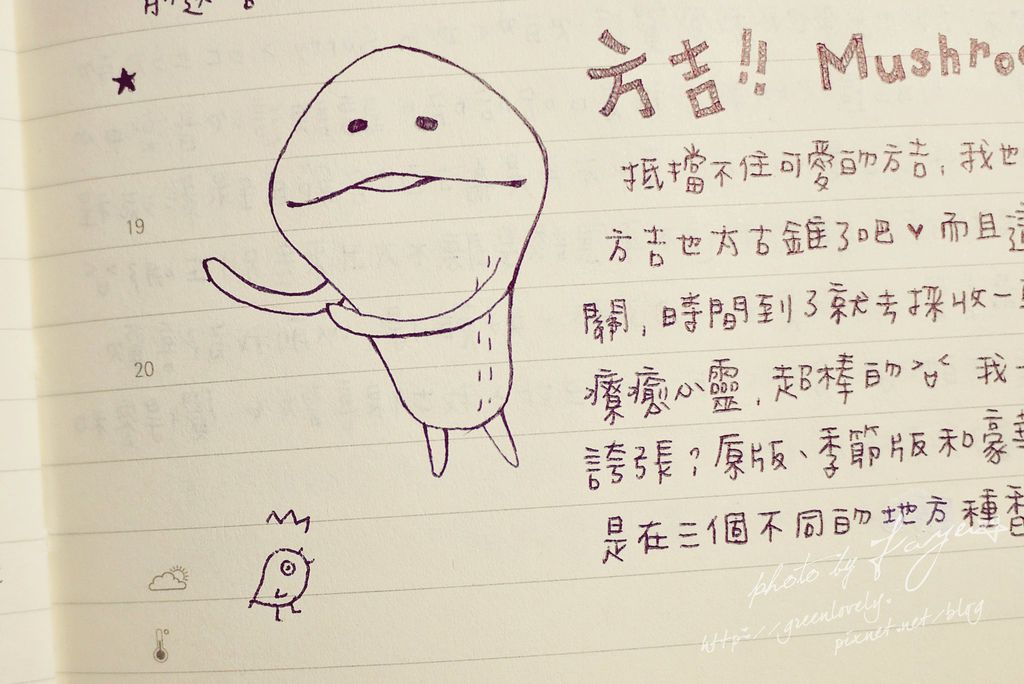 方吉!! Mushroo
抵擋不住可愛的方吉,我也
方吉也太古錐了吧♥而且這
關,時間到了就去採收一
療癒心靈,超棒的 我
誇張?原版、季節版和豪華
是在三個不同的地方種香
19
20
photo by
http://greenlovely.
pixnet.net/blog